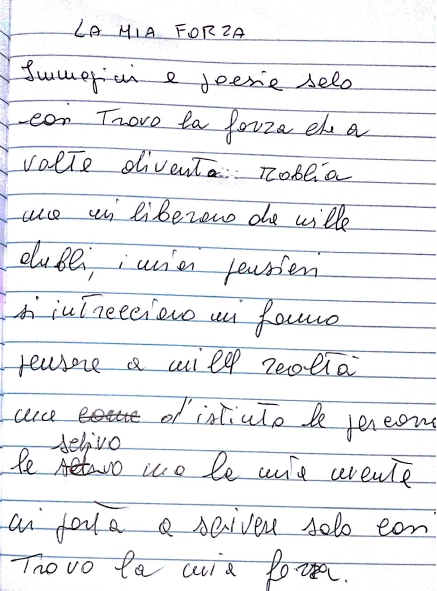 LA MIA FORZA
Immagini e poesie solo
così Trovo la forza che a
volte diventa rabbia
ma mi liberano da mille
dubbi, i miei pensieri
si intrecciano mi fanno
pensare a mille realtà
ma come d'istinto le persone
schivo
le ma la mia mente
mi porta a scrivere solo così
Trovo la mia forza.